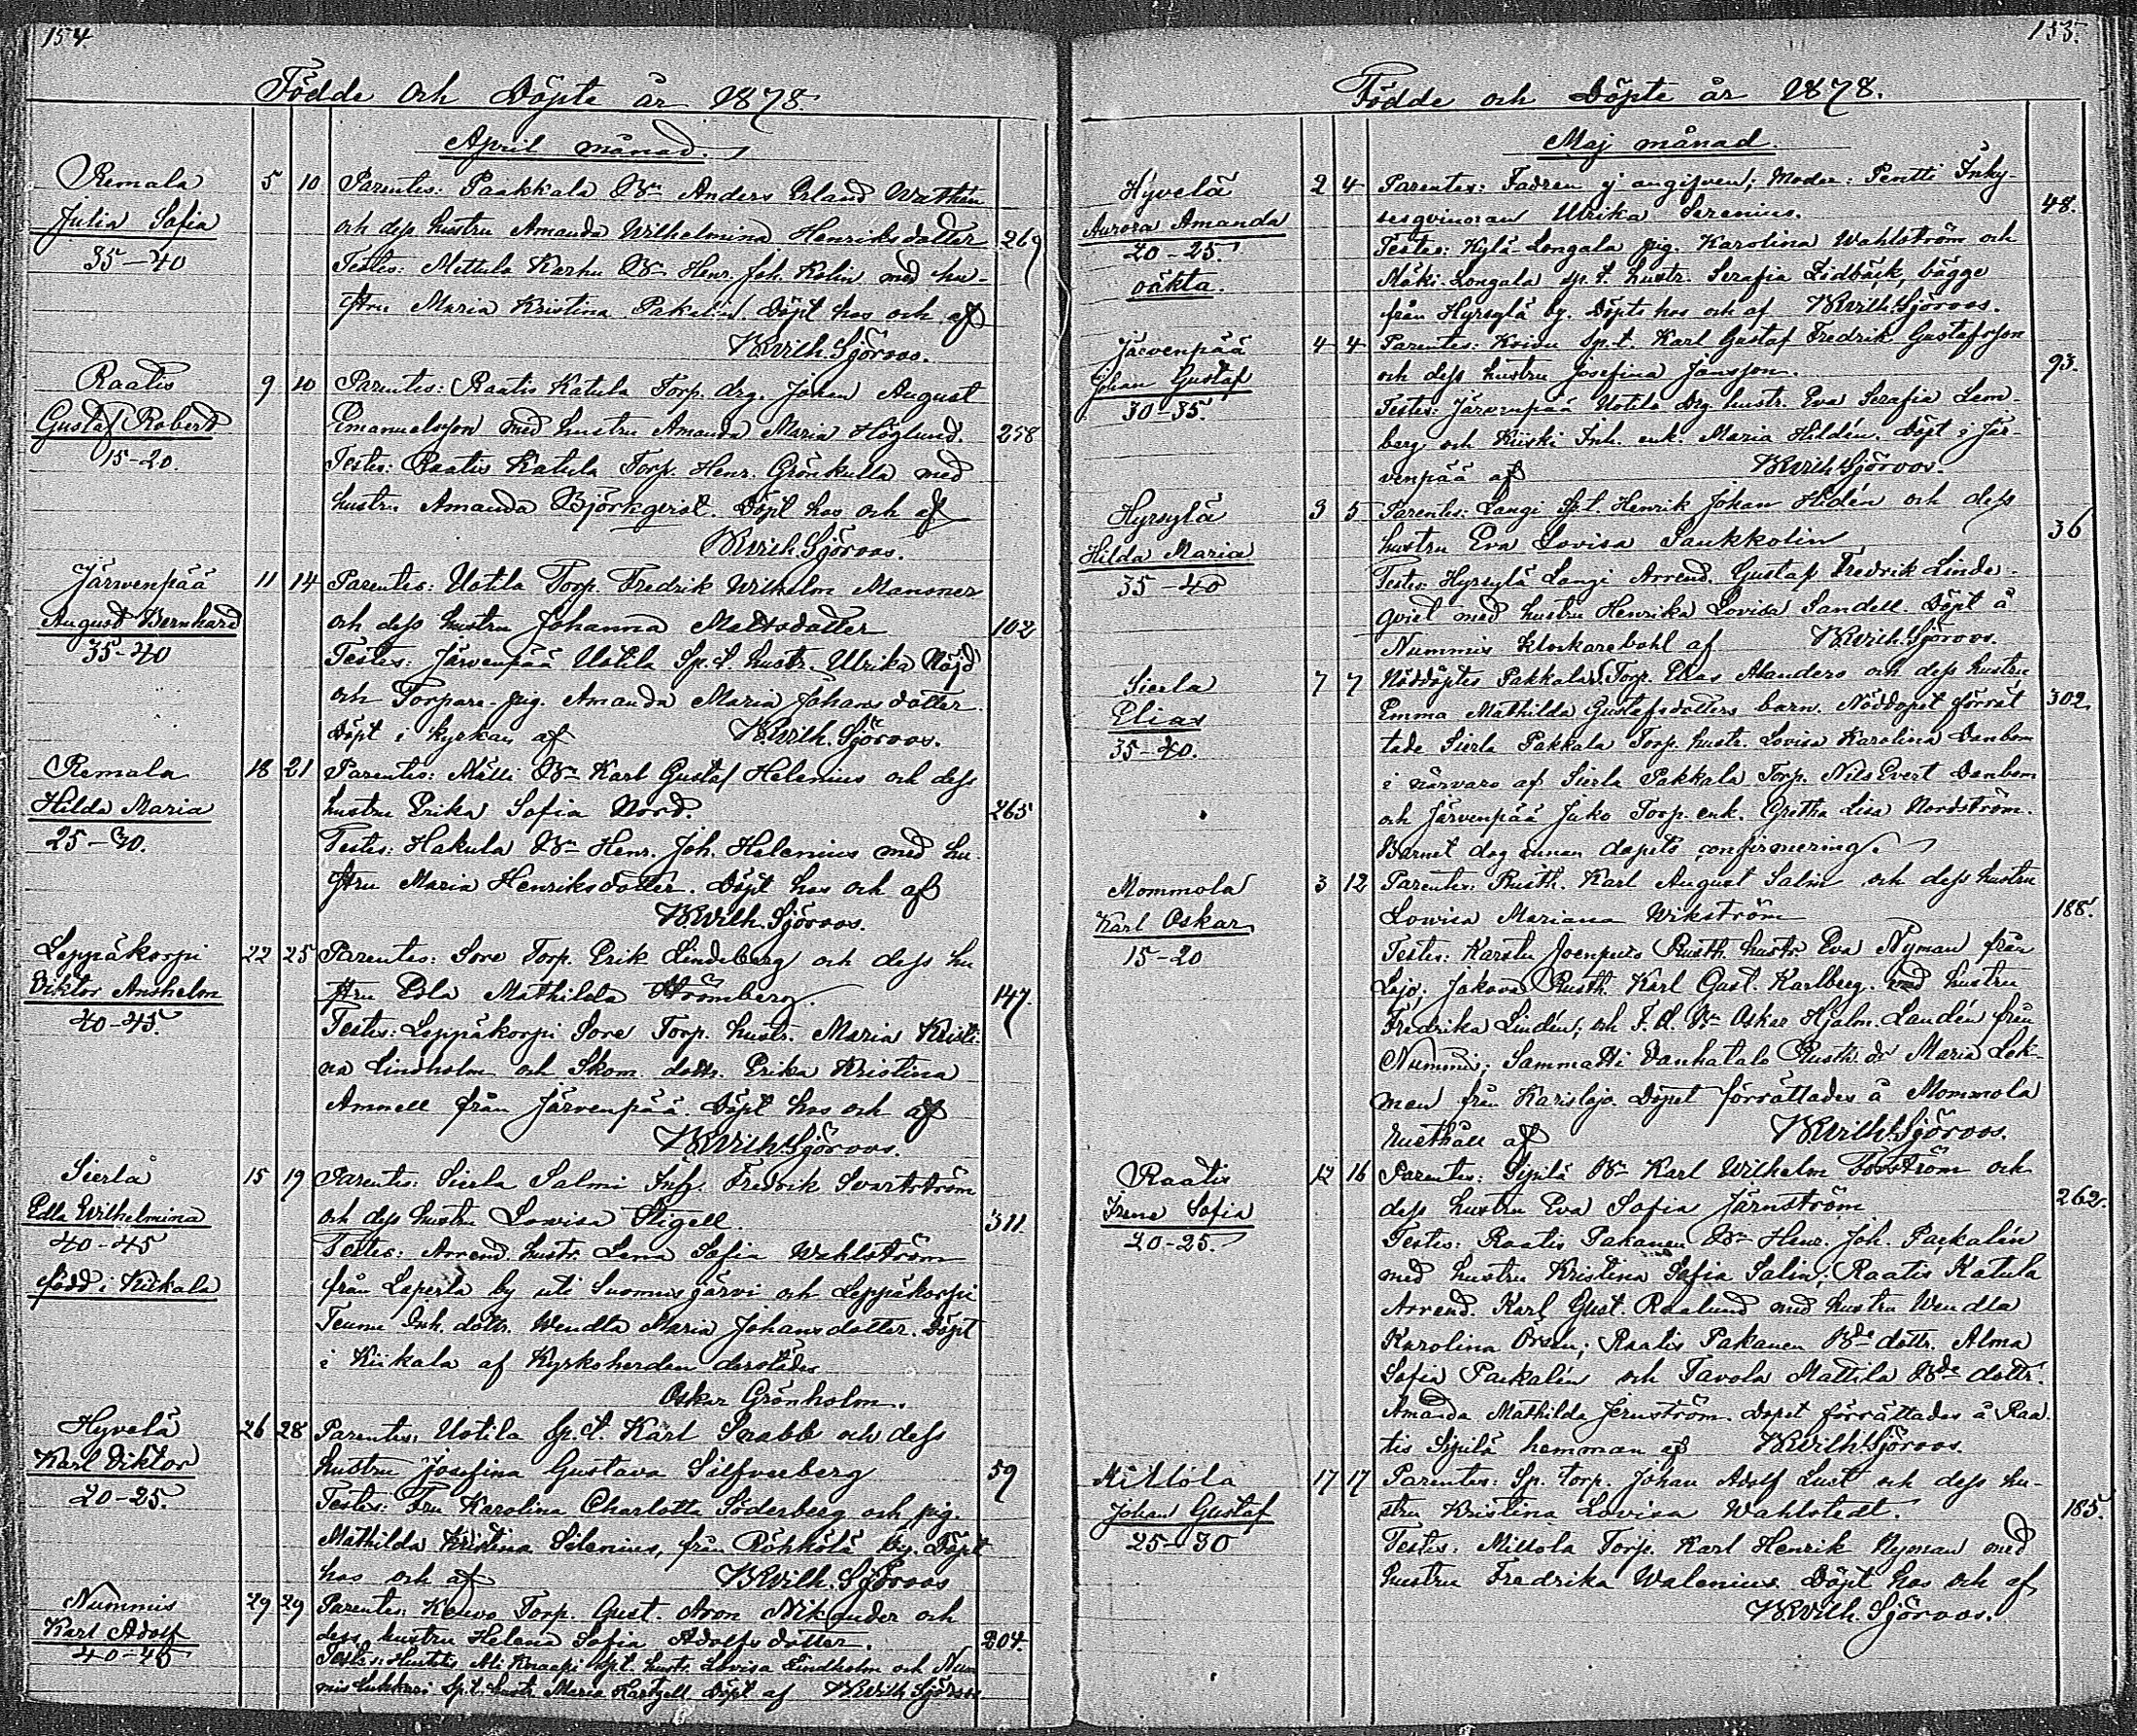 154.
Födde och Döpte år 1878
April månad.
Remala 5 10 Parentes: Paakkala Bn Anders Erland Wathén
Julia Sofia och dess hustru Amanda Wilhelmina Henriksdotter 269
35-40 Testes: Mettula Karhu Bn Henr. Joh. Kolin med hu-
stru Maria Kristina Pakalin. Döpt hos och af
KWilh. Sjöroos.
Raatis 9 10 Parentes: Raatis Katula Torp. drg. Johan August
Gustaf Robert Emanuelsson med hustru Amanda Maria Höglund. 258
15-20. Testes: Raatis Katula Torp. Henr. Grönkulla med
hustru Amanda Björkqvist. Döpt hos och af
KWilh. Sjöroos.
Järwenpää 11 14 Parentes: Uotila Torp. Fredrik Wilhelm Mansner
August Bernhard och dess hustru Johanna Mattsdotter 102
35-40 Testes: Järvenpää Uotila Sp.t. hustr. Ulrika Nöjd
och Torpare-pig. Amanda Maria Johansdotter.
Döpt i kyrkan af KWilh. Sjöroos.
Remala 18 21 Parentes: Mälli Bn Karl Gustaf Helenius och dess
Hilda Maria hustru Erika Sofia Nord. 265
25-30. Testes: Hakula Bn Henr. Joh. Helenius med hu-
stru Maria Henriksdotter. Döpt hos och af
KWilh. Sjöroos.
Leppäkorpi 22 25 Parentes: Sore Torp. Erik Lindeberg och dess hu
Viktor Anshelm stru Edla Mathilda Strömberg. 147
40-45. Testes: Leppäkorpi Sore Torp. hustr. Maria Kristi-
na Lindholm och Skom. dottr. Erika Kristina
Ammell från Järvenpää. Döpt hos och af
KWilh. Sjöroos.
Sierla 15 19 Parentes: Sierla Salmi Inh. Fredrik Svartström
Edla Wilhelmina och dess hustru Lovisa Stigell. 311.
40-45 Testes: Arrend. hustr. Lena Sofia Wahlström
född i Kiikala från Laperla by uti Suomusjärvi och Leppäkorpi
Teumu Inh. dottr. Wendla Maria Johansdotter. Döpt
i Kiikala af Kyrkoherden derstädes
Oskar Grönholm.
Hyvelä 26 28 Parentes: Uotila Sp.t. Karl Snabb och dess
Karl Viktor hustru Josefina Gustava Silfverberg 59
20-25. Testes: Fru Karolina Charlotta Söderberg och pig.
Mathilda Kristina Silenius, från Röhkölä by. Döpt
hos och af KWilh. Sjöroos
Nummis 29 29 Parentes: Torp. Gust. Aron Nikander och
Karl Adolf dess hustru Helena Sofia Adolfsdotter. 204.
40-45 Testes: Ali Knaapi Sp.t. hustr. Lovisa Lindholm och Num
mis Sp.t. hustr. Maria Hartzell. Döpt af KWilh Sjöroos
155.
Födde och Döpte år 1878.
Maj månad.
Hyvelä 2 4 Parentes: Fadren ej angifven; Moder: Pentti Inhy-
Aurora Amanda sesqvinnan Ulrika Serenius. 48.
20-25. Testes: Kylä-Longala pig. Karolina Wahlström och
oäkta. Mäki-Longala sp.t. hustr. Serafia Lidbäck, bägge
från Hyrsylä by. Döpts hos och af KWilh. Sjöroos.
Järvenpää 4 4 Parentes: Koivu Sp.t. Karl Gustaf Fredrik Gustafsson
Johan Gustaf och dess hustru Josefina Jansson. 93.
30-35. Testes: Järvenpää Uotila Drg. hustr. Eva Serafia Lem-
berg och Kiiski Inh. enk. Maria Hildén. Döpt i Jär-
venpää af KWilh. Sjöroos.
Hyrsylä 3 5 Parentes: Langi Sp.t. Henrik Johan Hidén och dess
Hilda Maria hustru Eva Lovisa Saukkolin 36
35-40 Testes: Hyrsylä Langi Arrend. Gustaf Fredrik Linde-
qvist med hustru Henrika Lovisa Sandell. Döpt å
Nummis Klockarebohl af KWilh. Sjöroos.
Sierla 7 7 Nöddöptes Pakkala Torp. Elias Alanders och dess hustru
Elias Emma Mathilda Gustafsdotters barn. Nöddopet förrät 302.
35-40. tade Sierla Pakkala Torp. hustr. Lovisa Karolina Danbom
i närvaro af Sierla Pakkala Torp. Nils Evert Danbom
och Järvenpää Juko Torp. enk. Gretha Lisa Nordström.
Barnet dog innan dopets confirmering.
Mommola 3 12 Parentes: Rusth. Karl August Salin och dess hustru
Karl Oskar Lowisa Mariana Wikström 188.
15-20 Testes: Karstu Joenpuis Rusth. hustr. Eva Nyman från
Lojo; Jakova Rusth. Karl Gust. Karlberg. med hustru
Fredrika Lindén; och F.d. Bn Oskar Hjalm. Landén från
Nummi; Sammatti Vanhatalo Rusth. dr Maria Lek-
man från Karislojo. Döpet förrättades å Mommola
rusthåll af KWilh. Sjöroos.
Raatis 12 16 Parentes: Sipilä Bn Karl Wilhelm Forsström och
Irene Sofia dess hustru Eva Sofia Järnström 262.
20-25. Testes: Raatis Pakanen Bn Henr. Joh. Packalén
med hustru Kristina Sofia Salin; Raatis Katula
Arrend. Karl Gust. Roslund med hustru Wendla
Karolina Ordén; Raatis Pakanen Bde dottr. Alma
Sofia Packalén och Tavola Mattila Bde dottr.
Amanda Mathilda Jernström. Dopet förrättades å Raa-
tis Sipilä hemman af KWilh Sjöroos.
Mittola 17 17 Parentes: Sp. torp. Johan Adolf Lust och dess hu-
Johan Gustaf stru Kristina Lovisa Wahlstedt. 185.
25-30 Testes: Mittola Torp. Karl Henrik Nyman med
hustru Fredrika Walenius. Döpt hos och af
KWilh. Sjöroos.